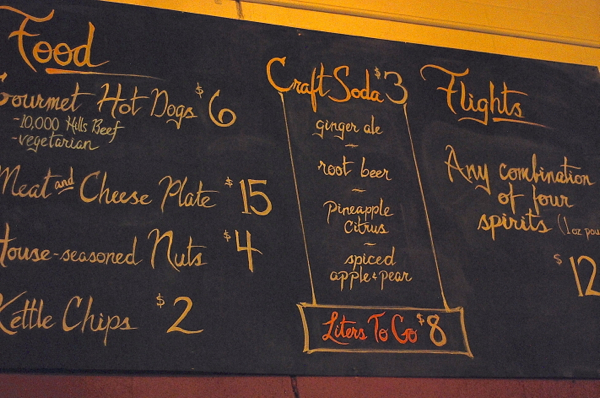 Food
Gourmet Hot Dogs $6
-10,000 Hills Beef
-vegetarian
Meat and Cheese Plate $15
House-seasoned Nuts $4
Kettle Chips $2
Craft Soda $3
ginger ale
~
root beer
~
Pineapple
Citrus
~
spiced
apple+pear
Liters To Go $8
Flights
Any combination
of four
spirits (1 oz pou
$12